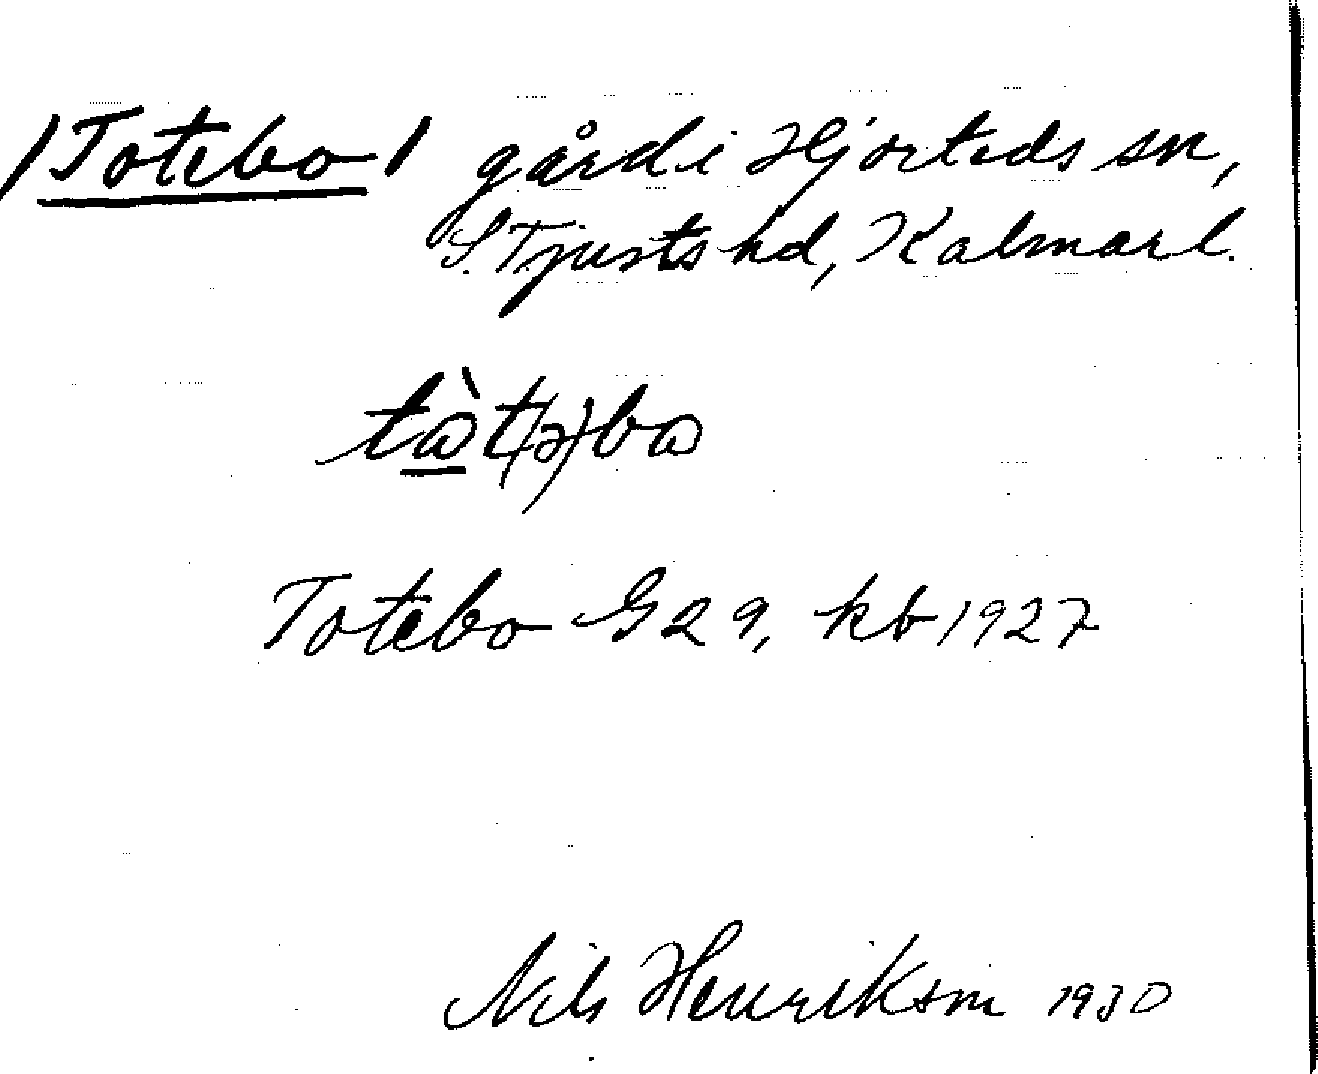 /Totebo/ gård i Hjorteds sn,
S. Tjusts hd, Kalmar l.
tà̱t(ə)bo
Totebo G 29, kb 1927
Nils Henriksson 1930